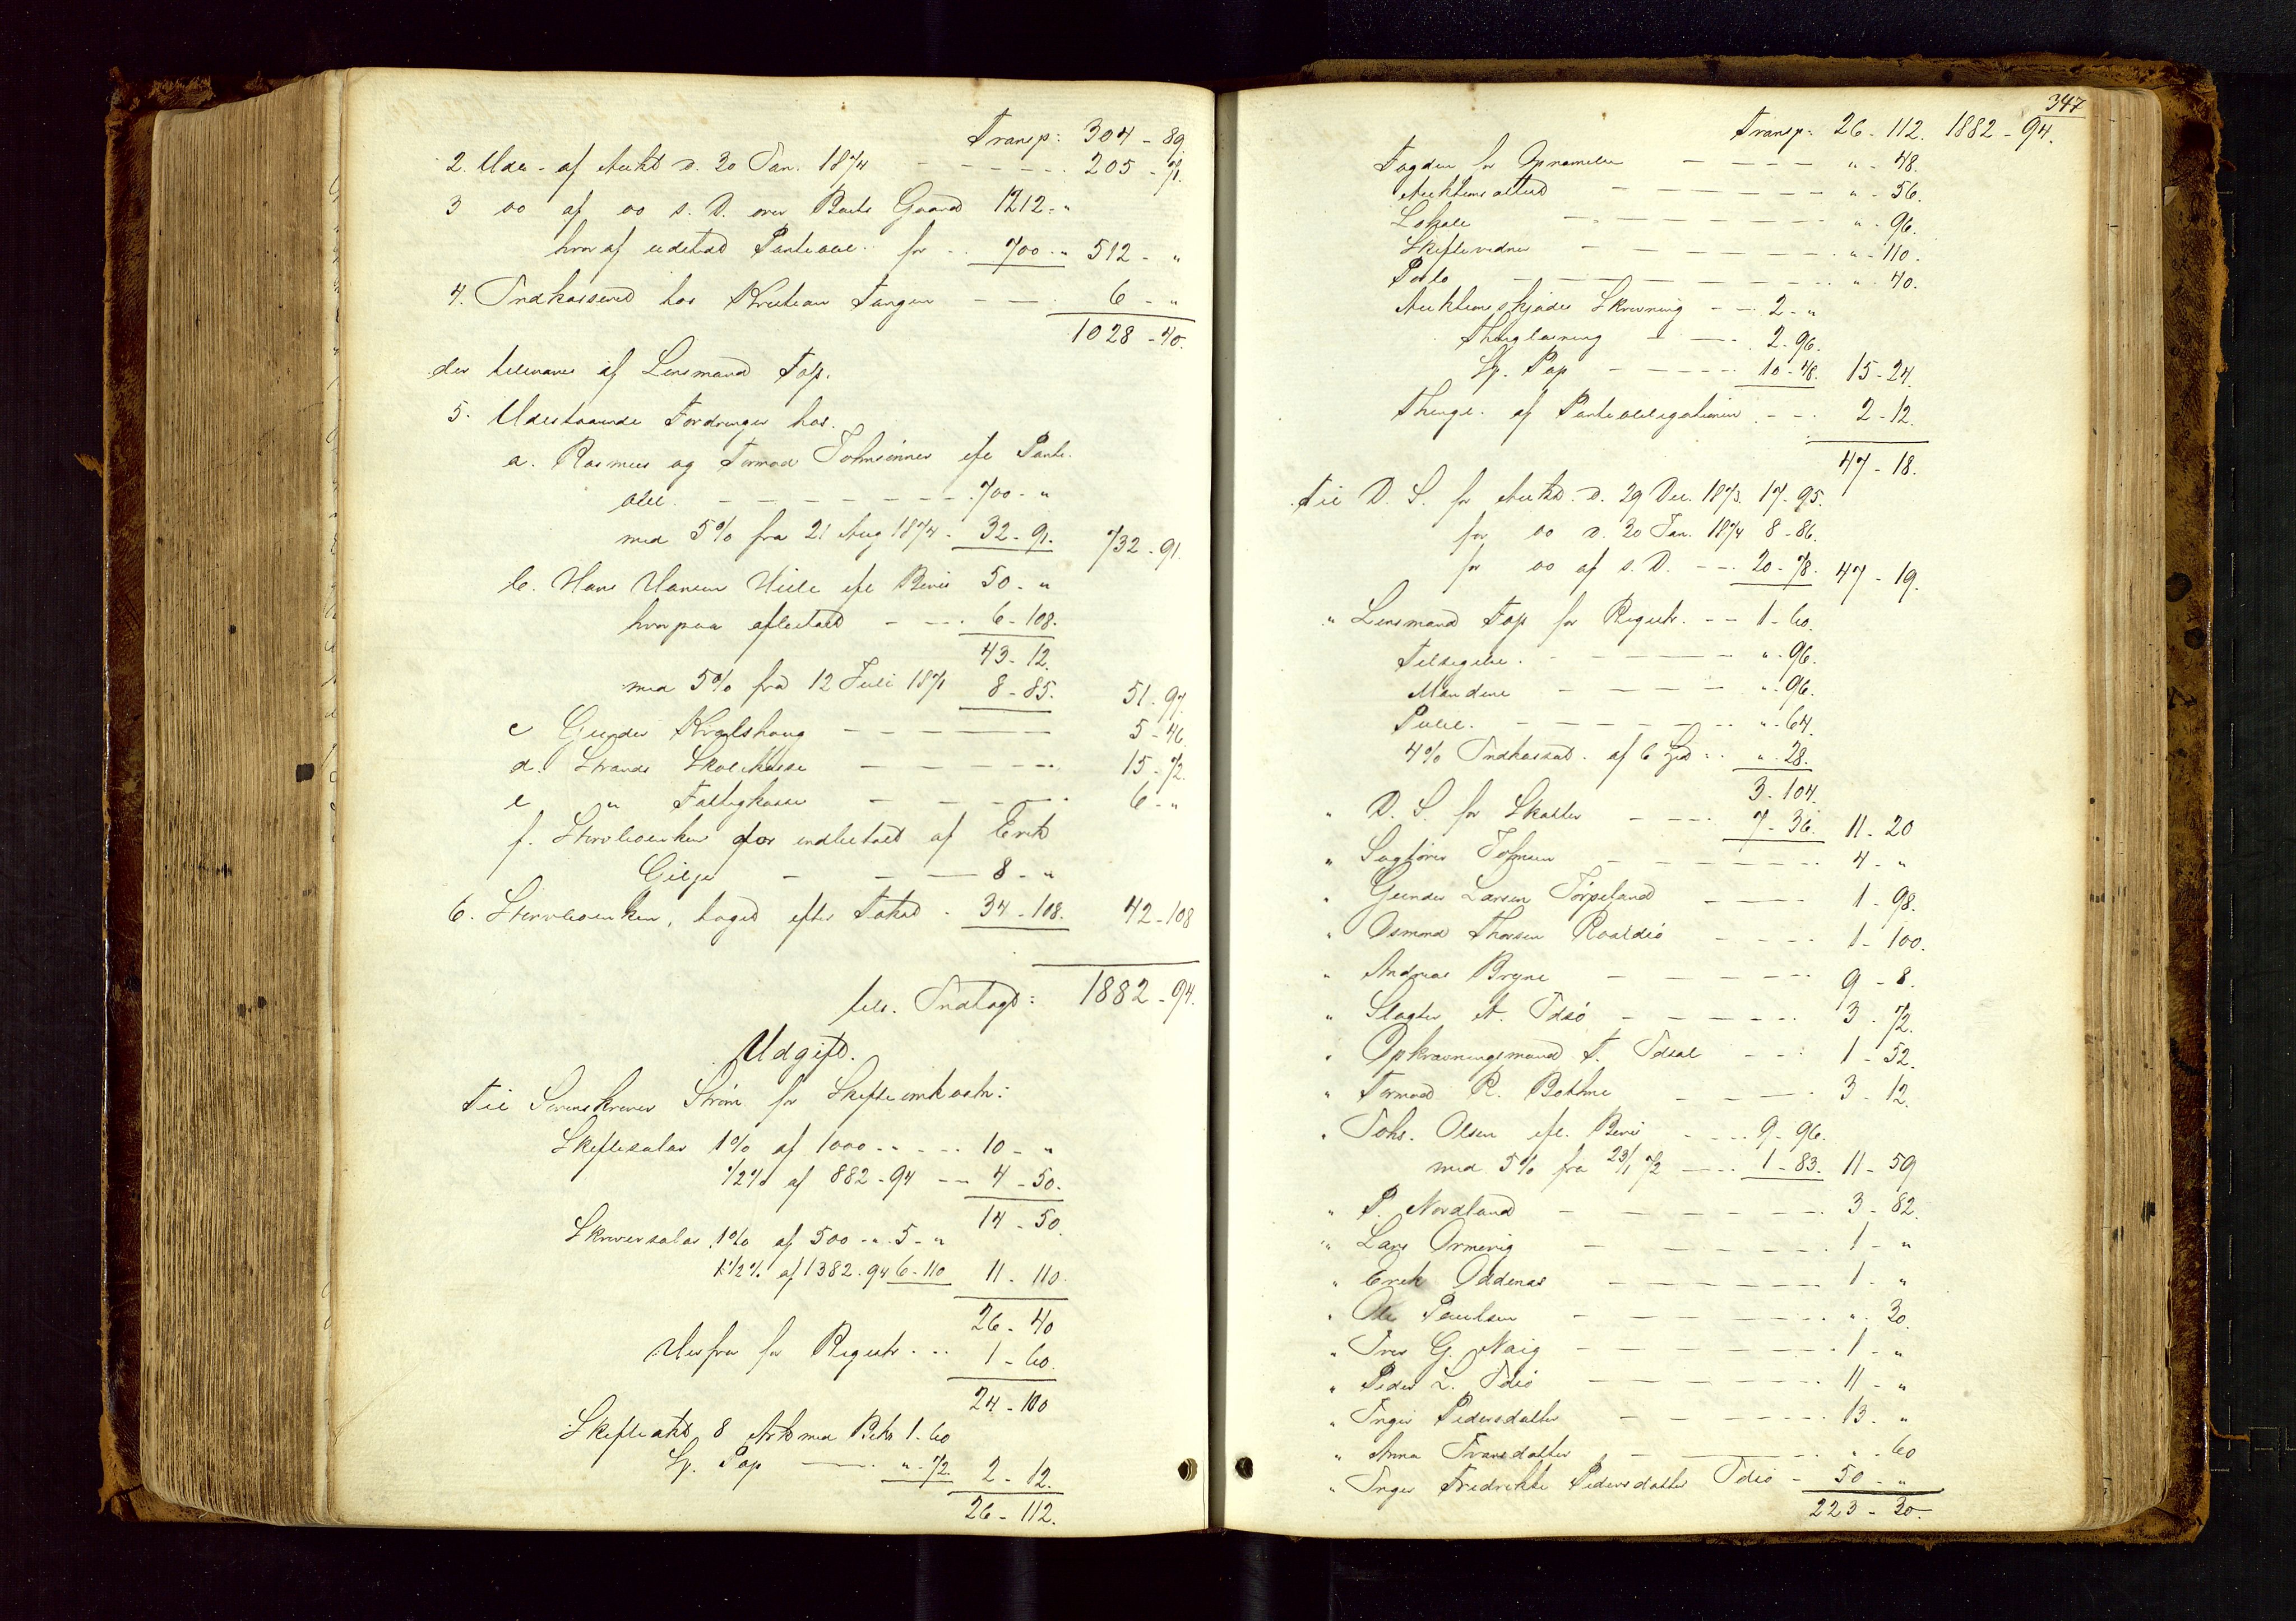 Transp: 304 - 89.
2. Udb. af Auktd. d. 30 Jan. 1874 - - - - - 205 - 71.
3 oo af oo s. D. over Boets Gaard 1212 - "
hvoraf udstæd Panteobl. for - - 700 - " 512 - "
4. Indkasserd hos Kristian Tangen - - - 6 - "
1028 - 40.
der tilsvares af Lensmand Top.
5. Udestaaende Fordringer hos.
a. Rasmus og Tormod Johnsønner efr Pante-
obl. - - - - - - - - 700 - "
med 5% fra 21 Aug 1874 - 32 - 91. 732 - 91.
b. Hans Hansen Hiele efr Bevis 50 - "
hvorpaa afbetalt - - - 6 - 108.
43 - 12.
med 5% fra 12 Juli 1871 8 - 85. 51 - 97.
c Gunder - - - - - - 5 - 46
d. Strands Skolekasse - - - - - 15 - 72.
e " Fattigkasse - - - - - 6 - "
f. Stervboenken for indbetalt af Erik
Gilje - - - 8 - "
6. Stervboenken, taget efter Taksd - 34 - 108. 42 - 108
tils. Indtægt: 1882 - 94.
Udgift.
Til Sorenskriver Strøm for Skifteomkostn:
Skiftesalær 1% af 1000 - - - - 10 - "
1/2% af 882 - 94 - - 4 - 50.
14 - 50.
Skriversalær 1% af 500 - " 5 - "
1/2% af 1382 - 94 6 - 110 11 - 110.
26 - 40
Herfra for Registr. - - 1 - 60.
24 - 100
Skifteaktd 8 Ark med Bekr 1 - 60
St. Pap - - - " - 72. 2 - 12.
26 - 112.
347
Transp: 26 - 112. 1882 - 94.
Fogden for Opnævnelse - - - - - " - 48.
Auktionsattest - - - - - - - " - 56.
Lokale - - - - - - - - " - 96.
Skiftevidner - - - - - - - " - 110.
Porto - - - - - - - - " - 40.
Auktionsskjøde Skrivning - - 2 - "
Thinglæsning - - - 2 - 96.
St. Pap - - - - - 10 - 48. 15 - 24.
Thingl. af Panteobligationen - - - 2 - 12.
47 - 18.
Til D. S. for Auktd. d. 29 Dec. 1873. 17 - 95.
for oo d. 30 Jan. 1874 8 - 86.
for oo af s. D. - - - 20 - 78. 47 - 19.
" Lensmand Top for Registr. - - 1 - 60.
Tilsigelse. - - - - - - " - 96.
Mændene - - - - - " - 96.
Publ. - - - - - - - " - 64.
4% Indkassad. af 6 Spd - - " - 28.
3 - 104.
" D. S. for Skatter - - - - 7 - 36. 11 - 20
" Sagfører Johnsen - - - - - - 4 - "
" Gunder Larsen Tørpeland - - - - 1 - 98.
" Osmond Thorsen - - - - 1 - 100.
" Andreas Bryne - - - - - - 9 - 8.
" Slagter A. Idsø - - - - - - 3 - 72.
" Opkrævningsmand T. Idsal - - - 1 - 52.
" Tormod R. Bothne - - - - 3 - 12.
" Johs. Olsen efr. Bevis - - - - 9 - 96.
med 5% fra 23/1 72 - - - 1 - 83. 11 - 59
" P. Nordland - - - - - - - 3 - 82.
" Lars Ormevig - - - - - - - 1 - "
" Erik Oddenes - - - - - - - 1 - "
" Ole Paulsen - - - - - - - " - 30.
" Iver G. Haig - - - - - - - 1 - "
" Peder L. Idsø - - - - - - 11 - "
" Inger Pedersdatter - - - - - - 13 - "
" Anna Ivarsdatter - - - - - - " - 60
" Inger Fredrikke Pedersdatter Idsø - 50 - "
223 - 30.